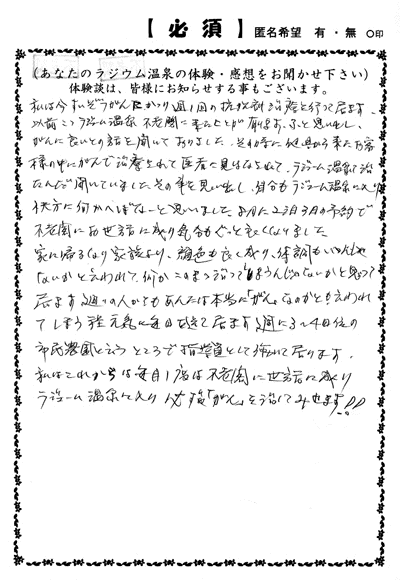 【必須】 匿名希望 有・無 ○印
(あなたのラジウム温泉の体験・感想をお聞かせ下さい)
体験談は、皆様にお知らせする事もございます。
私は今すいぞうがんにかかり週1回の抗がん剤治療を行って居ます。
以前この ラジウム温泉 不老閣に来たことが有ります。ふと思い出し、
がんに良いとの話を聞いておりました。その時に他県から来たお客
様の中にがんで治療されて医者に見はなされて、ラジウム温泉で治
たんだ聞いていました。その事を思い出し、自分もラジウム温泉に入り
快方に向かへばなーと思いました。 2泊3日の予約で
不老閣にお世話に成り気分もぐっと良くなりました
家に帰るなり家族より、顔色も良く成り、体調もいいんじゃ
ないかと言われて、何か このまま治ってしまうんじゃないかと思って
居ます 週りの人からもあんたは本当に「がん」なのかとも言われ
てしまう程 元気に毎日を過きて居ます 週に3〜4日位の
市民農園と言う ところで指導員として働いて居ります。
私はこれからは毎月1度は不老閣に世話に成り
ラジューム温泉に入り 必ず「がん」を治してみせます!!